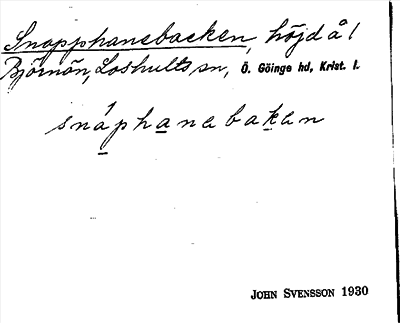 Snapphanebacken, höjd å 1
Björnön, Loshults sn, Ö. Göinge hd, Krist. l.
snáphanabakan
JOHN SVENSSON 1930